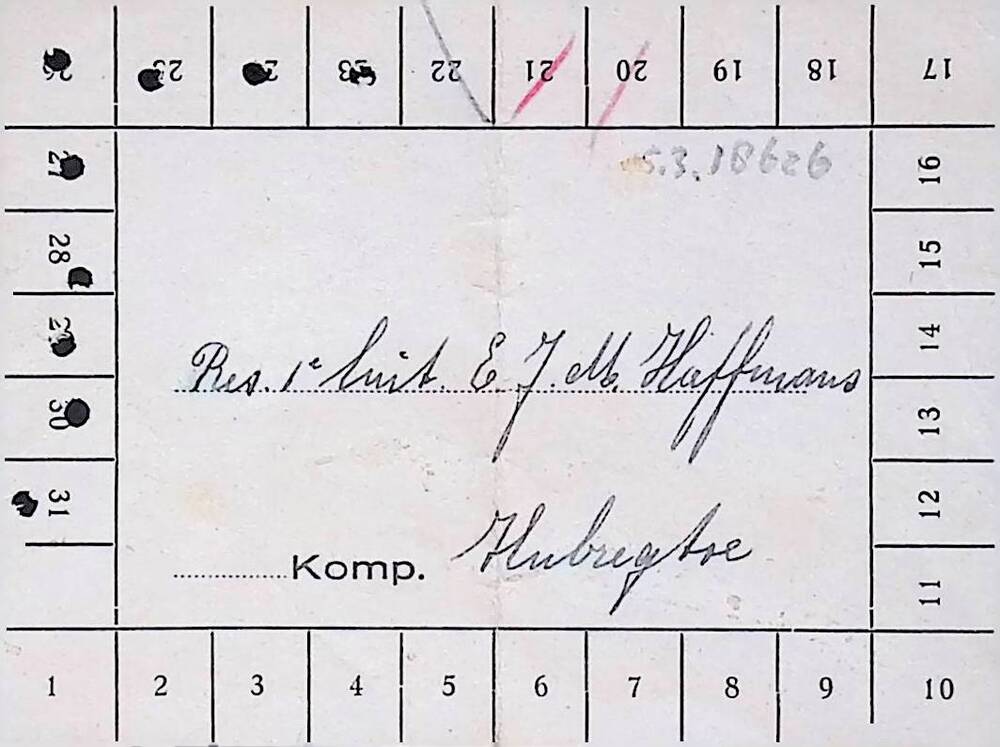 26 25 24 23 22 21 20 19 18 17
27 16
28 15
29 14
30 13
31 12
11
5.3.18626
Res. 1e luit. E. J. M. Haffmans
Komp. Hubregtse
1 2 3 4 5 6 7 8 9 10